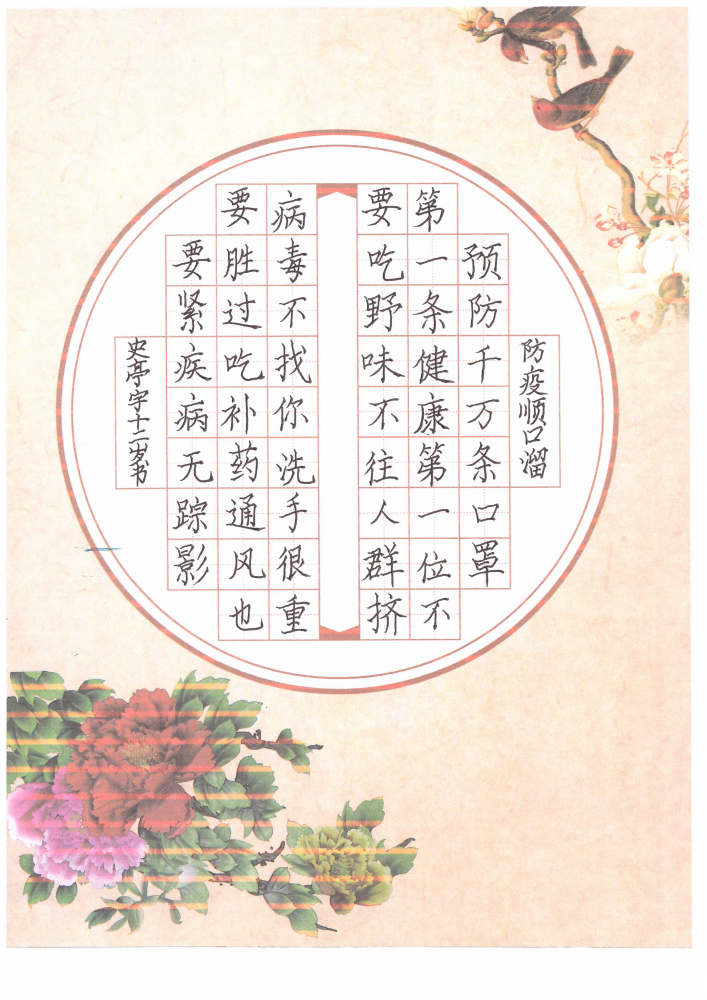 防疫顺口溜
预防千万条口罩
第一条健康第一位不
要吃野味不往人群挤
病毒不找你洗手很重
要胜过吃补药通风也
要紧疾病无踪影
史亭宇十二岁书